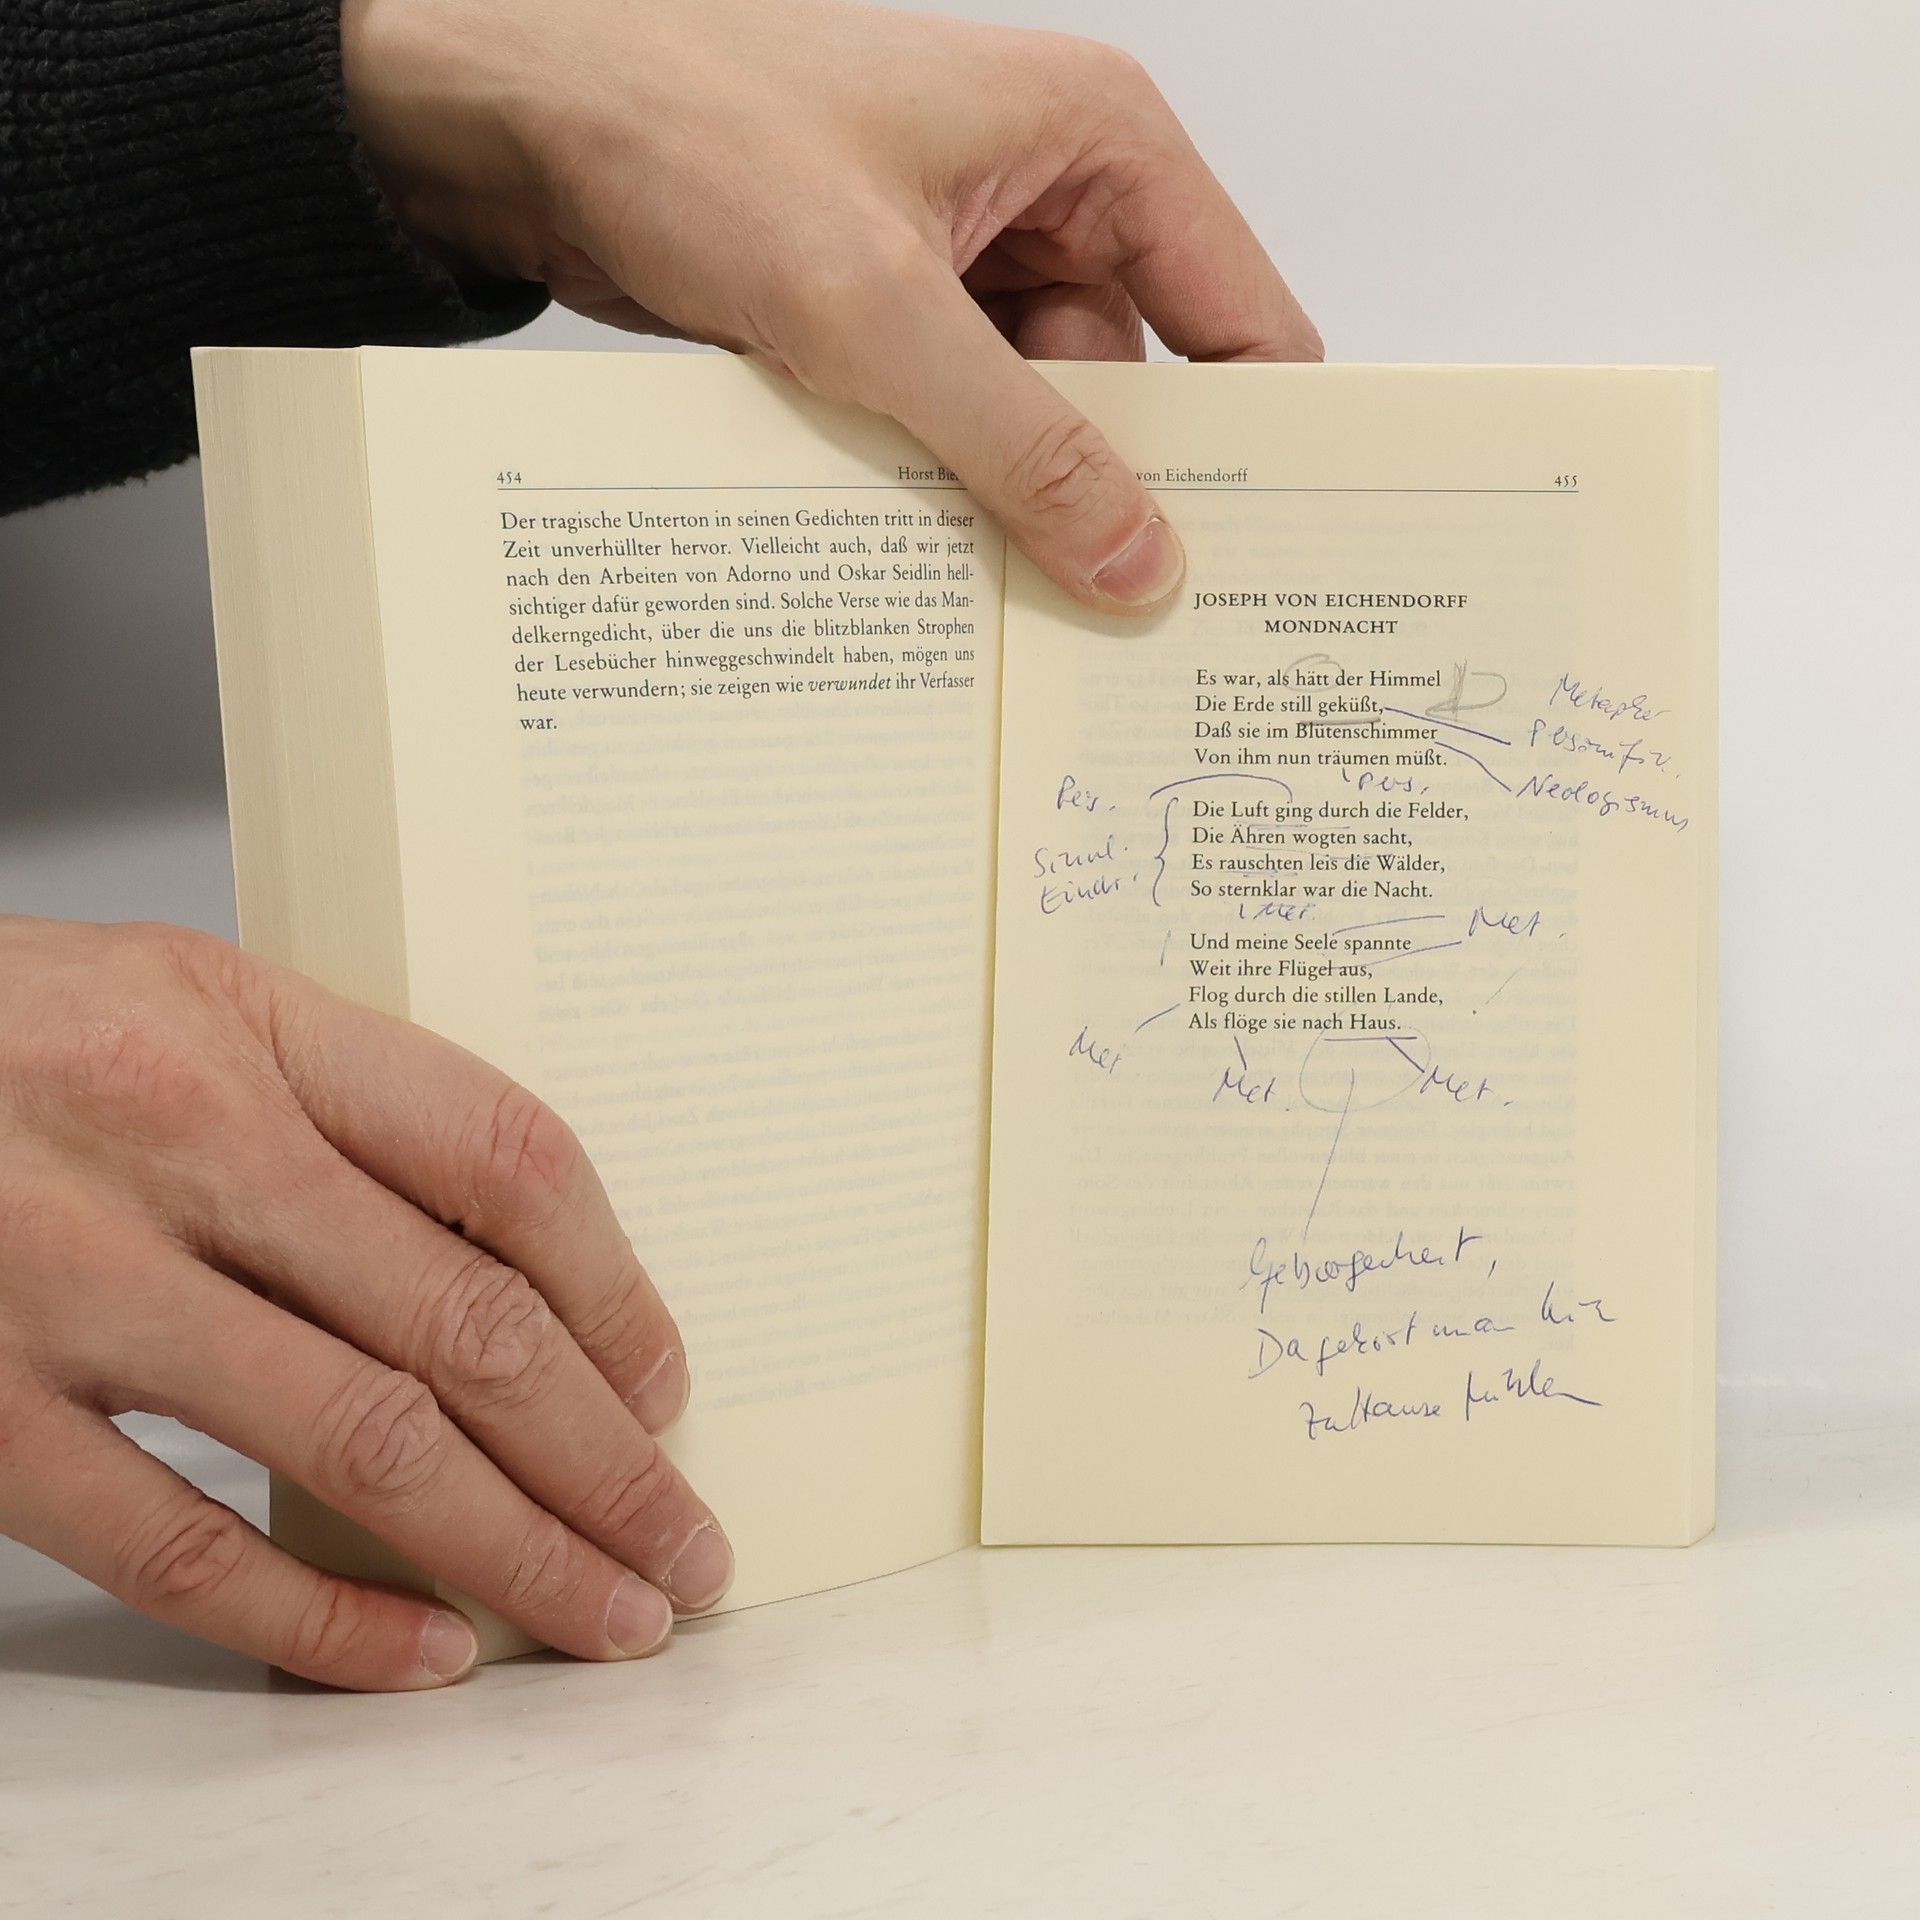 454
Horst
Der tragische Unterton in seinen Gedichten tritt in dieser
Zeit unverhüllter hervor. Vielleicht auch, daß wir jetzt
nach den Arbeiten von Adorno und Oskar Seidlin hell-
sichtiger dafür geworden sind. Solche Verse wie das Man-
delkerngedicht, über die uns die blitzblanken Strophen
der Lesebücher hinweggeschwindelt haben, mögen uns
heute verwundern; sie zeigen wie verwundet ihr Verfasser
war.
von Eichendorff
455
JOSEPH VON EICHENDORFF
MONDNACHT
Es war, als hätt der Himmel
Die Erde still geküßt,
Daß sie im Blütenschimmer
Von ihm nun träumen müßt.
Metapher
Personifiz.
Neologismus
Pers.
Pers.
Die Luft ging durch die Felder,
Die Ähren wogten sacht,
Es rauschten leis die Wälder,
So sternklar war die Nacht.
Sinnl.
Eindr.
Met.
Met.
Und meine Seele spannte
Weit ihre Flügel aus,
Flog durch die stillen Lande,
Als flöge sie nach Haus.
Met
Met.
Met.
Geborgenheit,
Da gehört man hin
zuhause fühlen